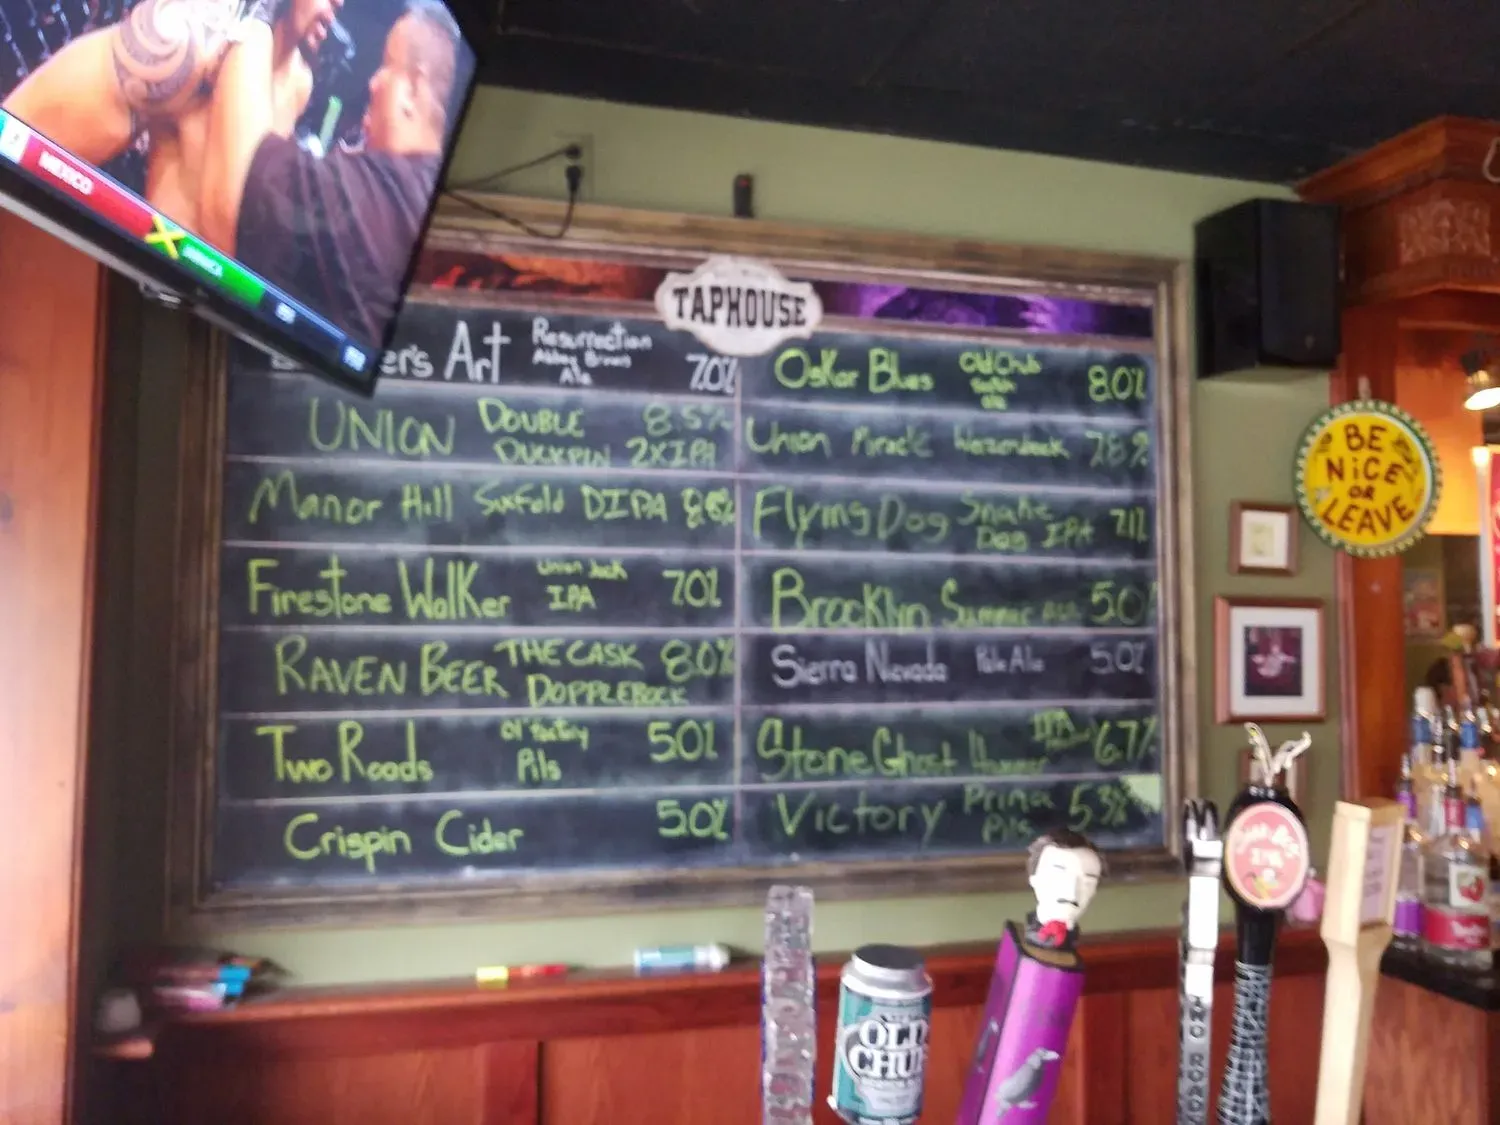 MEXICO
TAPHOUSE
er's Art Resurrection
Abbey Brown
Ale
7.0%
UNION DOUBLE 8.5%
DUCKPIN 2XIPA
Manor Hill Sixfold DIPA
Firestone Walker Union Jack
IPA
7.0%
RAVEN BEER THE CASK 8.0%
DOPPLEBOCK
Two Roads
Pils
5.0%
Crispin Cider 5.0%
Oskar Blues Old Chub
ale
8.0%
Union Miracle
Flying Dog Snake
Dog IPA
7.1%
Brooklyn Summer Ale 5.0
Sierra Nevada Pale Ale 5.0%
Stone Ghost Hammer IPA 6.7%
Victory Prima
Pils
5.3%
BE
NiCE
OR
LEAVE
OLD
CHU
IPA